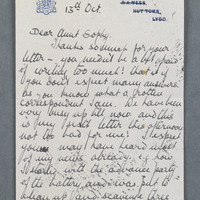 R.A. MESS,
HUTTONS,
LYDD.
13th Oct.
Dear Aunt Sophy,
Thanks so much for your
letter – you needn't be a bit afraid
of writing too much! that is if
you don't expect many answers,
as you know what a rotten
correspondent I am. We have been
very busy up till now and this
is my first letter this afternoon,
not too bad for me! I expect
you may have heard
of my news already & how
I with the advance party
of the battery and was put to
clean up and scavenge three